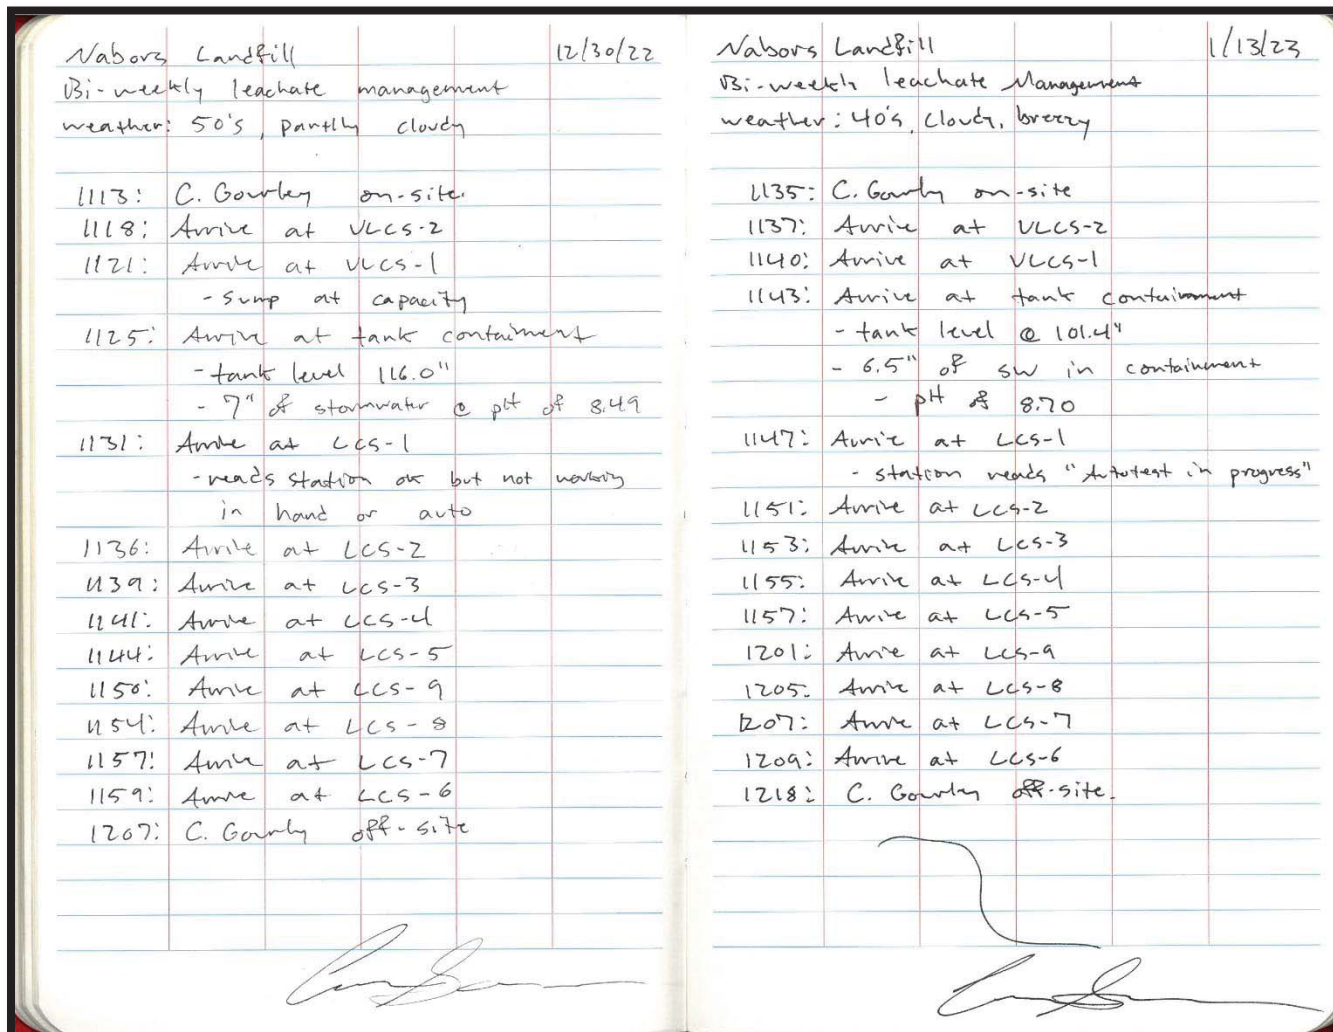 Nabors Landfill 12/30/22
Bi-weekly leachate management
weather: 50's, partly cloudy
1113: C. Gourley on-site.
1118: Arrive at VLCS-2
1121: Arrive at VLCS-1
- Sump at capacity
1125: Arrive at tank contaiment
- tank level 116.0"
- 7" of stormwater @ pH of 8.49
1131: Arrive at LCS-1
- reads station ok but not working
in hand or auto
1136: Arrive at LCS-2
1139: Arrive at LCS-3
1141: Arrive at LCS-4
1144: Arrive at LCS-5
1150: Arrive at LCS-9
1154: Arrive at LCS-8
1157: Arrive at LCS-7
1159: Arrive at LCS-6
1207: C. Gourly off-site
Nabors Landfill 1/13/23
Bi-weekly leachate Management
weather: 40's, cloudy, breezy
1135: C. Gourly on-site
1137: Arrive at VLCS-2
1140: Arrive at VLCS-1
1143: Arrive at tank containment
- tank level @ 101.4"
- 6.5" of SW in containment
- pH of 8.70
1147: Arrive at LCS-1
- station reads "Autotest in progress"
1151: Arrive at LCS-2
1153: Arrive at LCS-3
1155: Arrive at LCS-4
1157: Arrive at LCS-5
1201: Arrive at LCS-9
1205: Arrive at LCS-8
1207: Arrive at LCS-7
1209: Arrive at LCS-6
1218: C. Gourly off-site.